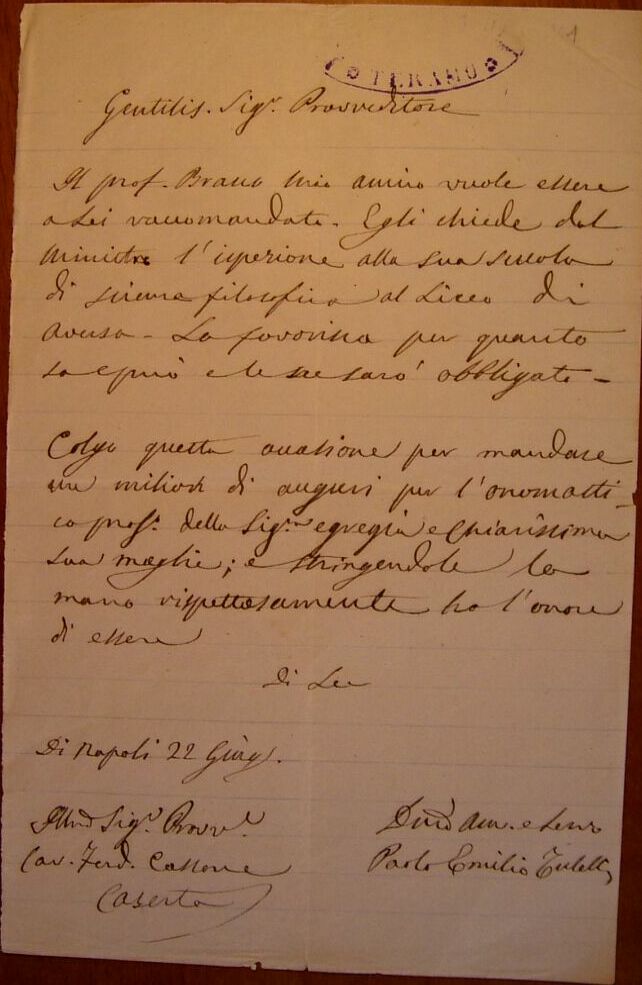 TERAMO
Gentilis. Sigr. Provveditore
Il prof. Bravo mio amico vuole essere
a Lei raccomandato. Egli chiede dal
Ministro l'ispezione alla sua scuola
di scienza filosofica al Liceo di
Aversa - Lo favorisca per quanto
sa e può e le ne sarò obbligato -
Colgo questa occasione per mandare
un milione di auguri per l'onomasti-
co pross.o della Sig.ra egregia e chiarissima
sua moglie; e stringendole la
mano rispettosamente ho l'onore
di essere
Di Lei
Di Napoli 22 Giug.
Sigr. Provv.
Cav. Ferd. Cassone
Caserta
Paolo Emilio